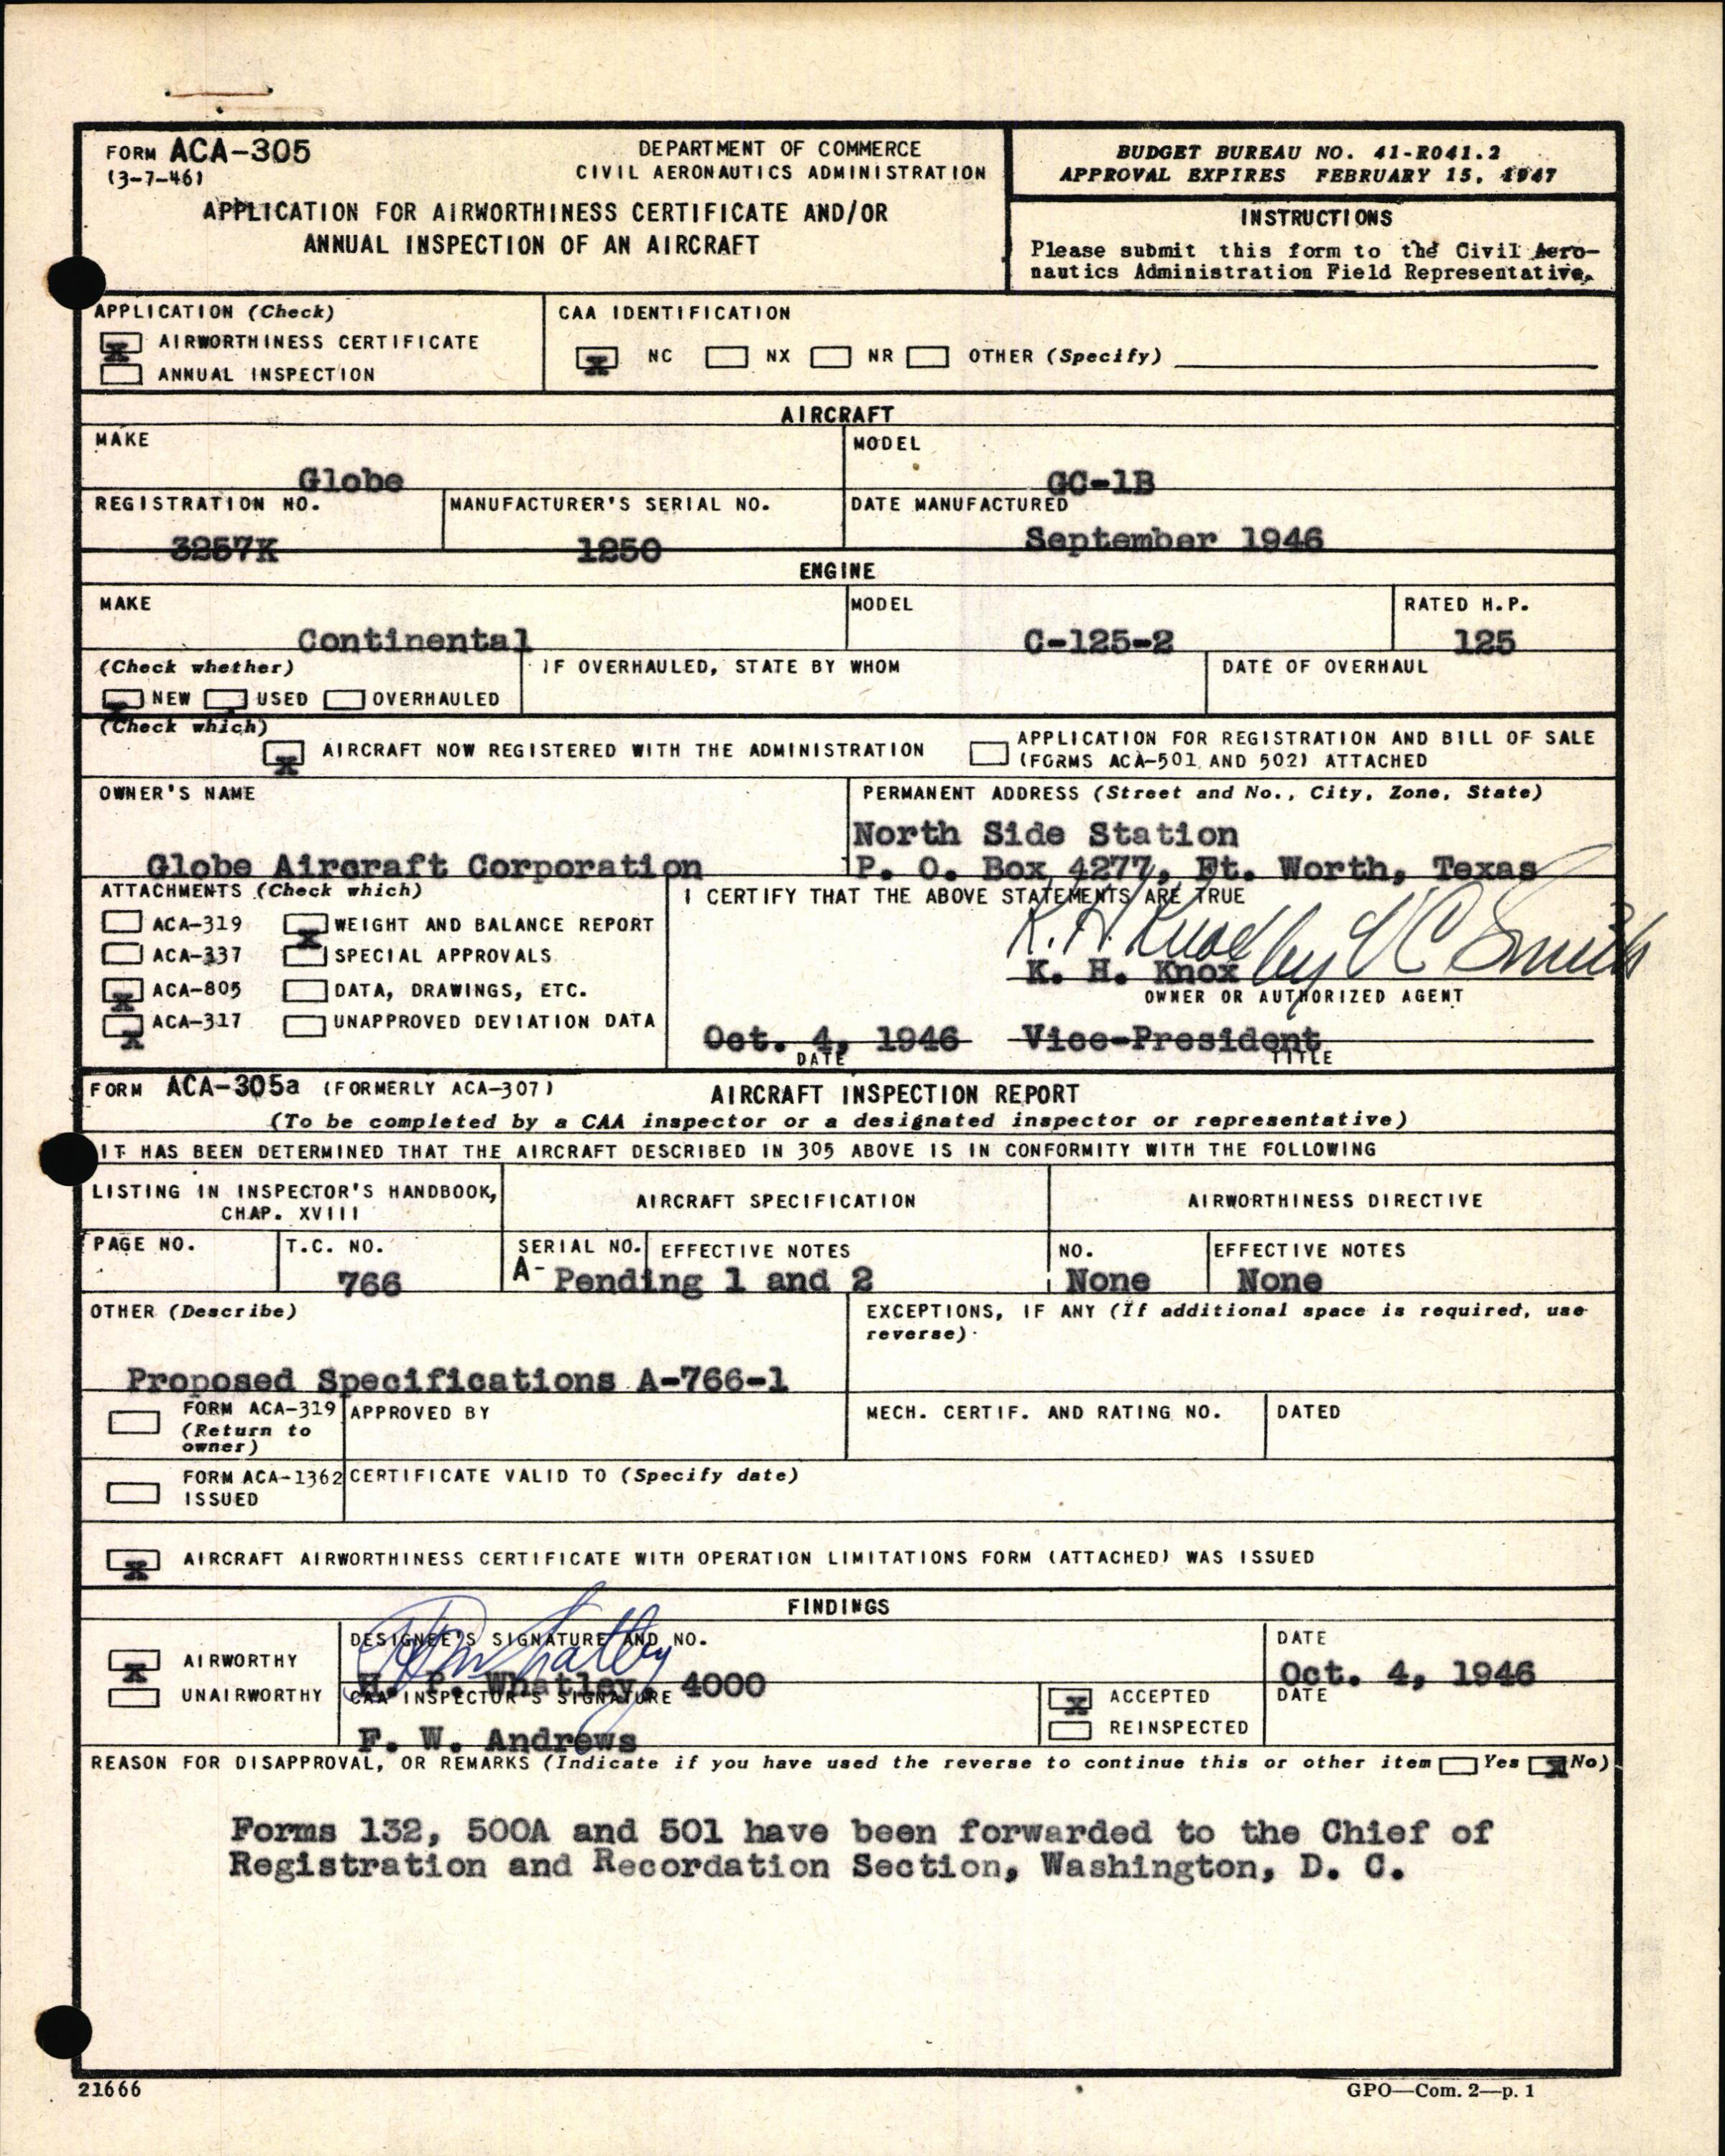 FORM ACA-305
(3-7-46)
DEPARTMENT OF COMMERCE
CIVIL AERONAUTICS ADMINISTRATION
APPLICATION FOR AIRWORTHINESS CERTIFICATE AND/OR
ANNUAL INSPECTION OF AN AIRCRAFT
BUDGET BUREAU NO. 41-R041.2
APPROVAL EXPIRES FEBRUARY 15, 1947
INSTRUCTIONS
Please submit this form to the Civil Aero-
nautics Administration Field Representative.
APPLICATION (Check)
X AIRWORTHINESS CERTIFICATE
ANNUAL INSPECTION
CAA IDENTIFICATION
X NC NX NR OTHER (Specify)
AIRCRAFT
MAKE
Globe
MODEL
GC-1B
REGISTRATION NO.
3257K
MANUFACTURER'S SERIAL NO.
1250
DATE MANUFACTURED
September 1946
ENGINE
MAKE
Continental
MODEL
C-125-2
RATED H.P.
125
(Check whether)
X NEW USED OVERHAULED
IF OVERHAULED, STATE BY WHOM
DATE OF OVERHAUL
(Check which)
X AIRCRAFT NOW REGISTERED WITH THE ADMINISTRATION
APPLICATION FOR REGISTRATION AND BILL OF SALE
(FORMS ACA-501 AND 502) ATTACHED
OWNER'S NAME
Globe Aircraft Corporation
PERMANENT ADDRESS (Street and No., City, Zone, State)
North Side Station
P. O. Box 4277, Ft. Worth, Texas
ATTACHMENTS (Check which)
ACA-319 X WEIGHT AND BALANCE REPORT
ACA-337 SPECIAL APPROVALS
X ACA-805 DATA, DRAWINGS, ETC.
X ACA-317 UNAPPROVED DEVIATION DATA
I CERTIFY THAT THE ABOVE STATEMENTS ARE TRUE
K. H. Knox by V C Smith
K. H. Knox
OWNER OR AUTHORIZED AGENT
Oct. 4, 1946 Vice-President
DATE TITLE
FORM ACA-305a (FORMERLY ACA-307) AIRCRAFT INSPECTION REPORT
(To be completed by a CAA inspector or a designated inspector or representative)
IT HAS BEEN DETERMINED THAT THE AIRCRAFT DESCRIBED IN 305 ABOVE IS IN CONFORMITY WITH THE FOLLOWING
LISTING IN INSPECTOR'S HANDBOOK,
CHAP. XVIII
AIRCRAFT SPECIFICATION
AIRWORTHINESS DIRECTIVE
PAGE NO.
T.C. NO.
766
SERIAL NO. EFFECTIVE NOTES
A- Pending 1 and 2
NO.
None
EFFECTIVE NOTES
None
OTHER (Describe)
Proposed Specifications A-766-1
EXCEPTIONS, IF ANY (If additional space is required, use
reverse).
FORM ACA-319
(Return to
owner)
APPROVED BY
MECH. CERTIF. AND RATING NO.
DATED
FORM ACA-1362
ISSUED
CERTIFICATE VALID TO (Specify date)
X AIRCRAFT AIRWORTHINESS CERTIFICATE WITH OPERATION LIMITATIONS FORM (ATTACHED) WAS ISSUED
FINDINGS
X AIRWORTHY
UNAIRWORTHY
DESIGNEE'S SIGNATURE AND NO.
H. P. Whatley
H. P. Whatley, 4000
DATE
Oct. 4, 1946
CAA INSPECTOR'S SIGNATURE
F. W. Andrews
X ACCEPTED
REINSPECTED
DATE
REASON FOR DISAPPROVAL, OR REMARKS (Indicate if you have used the reverse to continue this or other item Yes X No)
Forms 132, 500A and 501 have been forwarded to the Chief of
Registration and Recordation Section, Washington, D. C.
21666
GPO—Com. 2—p. 1